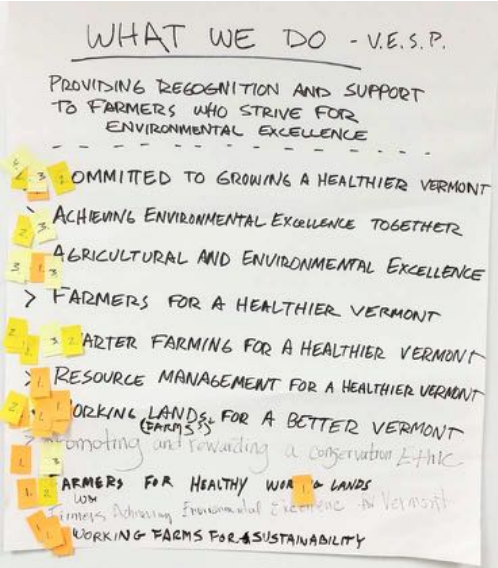 WHAT WE DO - V.E.S.P.
PROVIDING RECOGNITION AND SUPPORT
TO FARMERS WHO STRIVE FOR
ENVIRONMENTAL EXCELLENCE
3. OMMITTED TO GROWING A HEALTHIER VERMONT
2. 3. ACHIEVING ENVIRONMENTAL EXCELLENCE TOGETHER
3. 1. 3 AGRICULTURAL AND ENVIRONMENTAL EXCELLENCE
> FARMERS FOR A HEALTHIER VERMONT
2. 3 2 ARTER FARMING FOR A HEALTHIER VERMONT
> 1. RESOURCE MANAGEMENT FOR A HEALTHIER VERMONT
2. 1. ORKING LANDS FOR A BETTER VERMONT
(FARMS)
> Promoting and rewarding a conservation Ethic
1. 3
1. 2 FARMERS FOR HEALTHY WOR 1. G LANDS
Farmers Achieving Environmental in Vermont
1. WORKING FARMS FOR SUSTAINABILITY